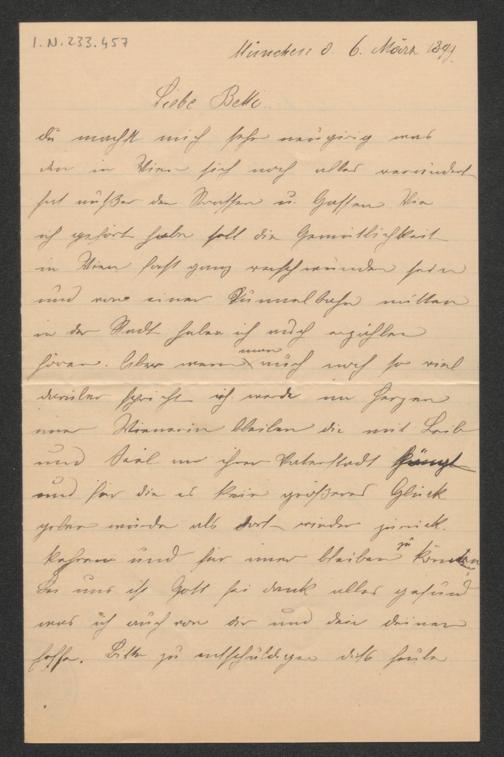 I.N.233.457
München d. 6. März 1899.
Liebe Betti
du machst mich sehr neugirig was
den in Wien sich noch alles verändert
hat außer den Strassen u. Gassen Wie
ich gehört habe soll die Gemütlichkeit
in Wien fast ganz verschwunden sein
und von einer Tunnelbahn mitten
in der Stadt habe ich auch erzählen
hören. Aber wenn man auch noch so viel
darüber spricht ich werde im Herzen
imer Wienerin bleiben die mit Leib
und Seel an ihrer Vaterstadt hängt
und für die es kein größeres Glück
geben würde als dort wieder zurück
kehren und für imer bleiben zu können
Bei uns ist Gott sei dank alles gesund
was ich auch von dir und den deinen
hoffe. Bitte zu entschuldigen das heute